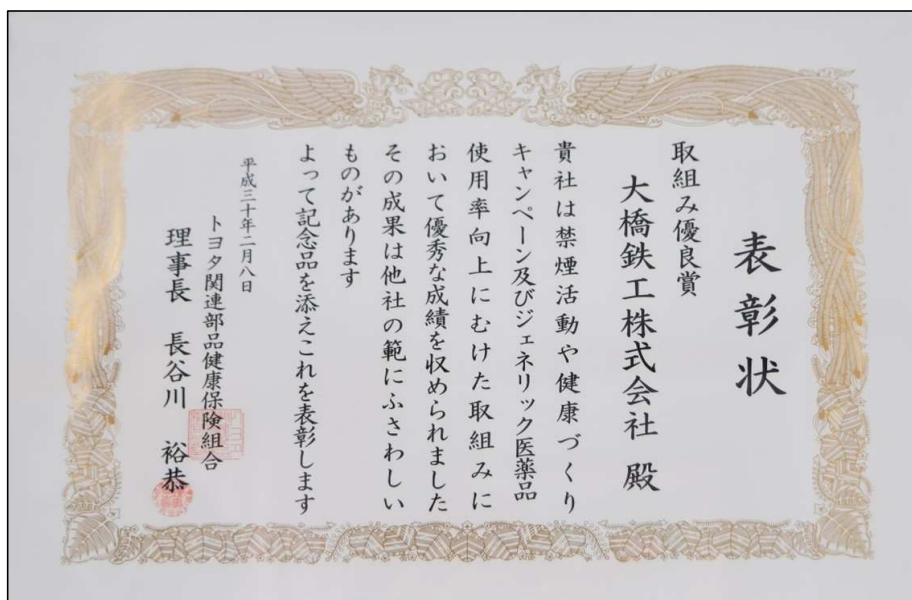 表彰状
取組み優良賞
大橋鉄工株式会社 殿
貴社は禁煙活動や健康づくり
キャンペーン及びジェネリック医薬品
使用率向上にむけた取組みに
おいて優秀な成績を収められました
その成果は他社の範にふさわしい
ものがあります
よって記念品を添えこれを表彰します
平成三十年二月八日
トヨタ関連部品健康保険組合
理事長 長谷川 裕恭